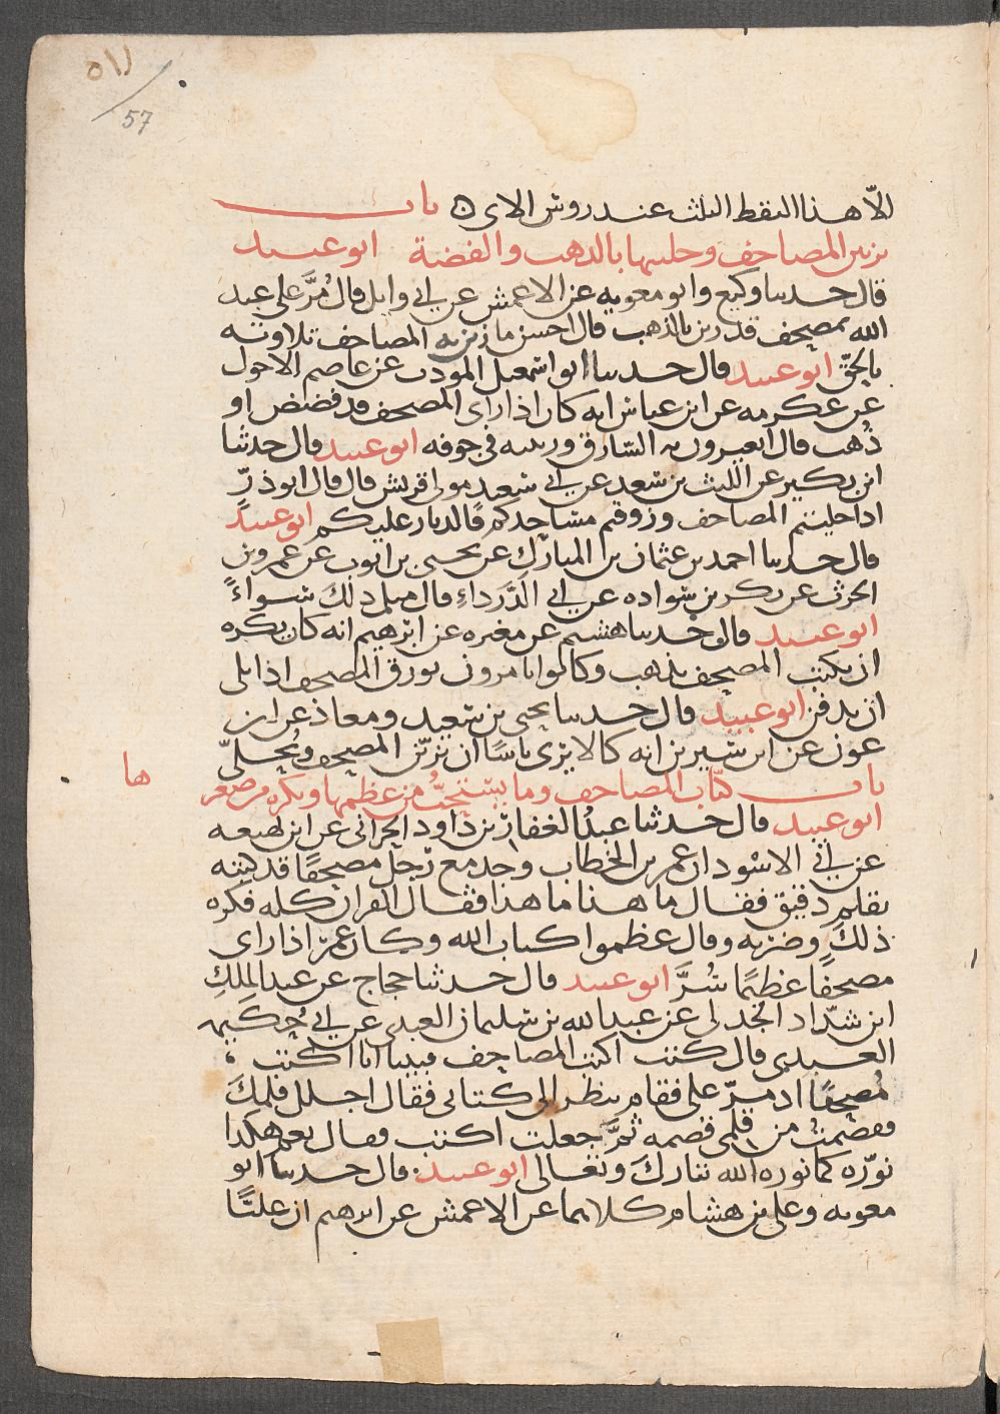 57
الاّ هذا النقط الثلث عند روس الاى ۞ باب
تزيين المصاحف وحليتها بالذهب والفضة ابو عبيد
قال حدثنا وكيع وابو معويه عن الاعمش عن ابي وايل قال مُرَّ على عبد
الله بمصحف قد زين بالذهب قال احسن ما زين به المصاحف تلاوته
بالحقّ ابو عبيد قال حدثنا ابو اسمعيل المودب عن عاصم الاحول
عن عكرمه عن ابن عباس انه كان اذا راى المصحف قد فضض او
ذُهب قال اتغرون به السّارق وزينته في جوفه ابو عبيد قال حدثنا
ابن بكير عن الليث بن سعد عن ابي سعيد مولى قريش قال قال ابو ذرّ
اذا حليتم المصاحف وزوقتم مساجدكم فالدبار عليكم ابو عبيد
قال حدثنا احمد بن عثمان بن المبارك عن يحيى بن ايوب عن عمرو بن
الحرث عن بكر بن سواده عن ابي الدَّرداءِ قال مثل ذلك سواءً
ابو عبيد قال وحدثنا هشيم عن مغيره عن ابرهيم انه كان يكره
ان يكتب المصحف بذهب وكانوا يامرون بورق المصحف اذا بلى
ان يدفن ابو عبيد قال حدثنا يحيى بن سعيد ومعاذ عن ابن
عون عن ابن سيرين انه كان لا يرى باسًا ان يزيّن المصحف ويُحلّى
باب كتّاب المصاحف وما يستحبُّ من عظمها ويكره من صغر
ها
ابو عبيد قال حدثنا عبدُ الغفار بن داود الحراني عن ابن لهيعه
عن ابي الاسود ان عمر بن الخطاب وجد مع رجل مصحفًا قد كتبه
بقلم دقيق فقال ما هذا ما هذا فقال القران كله فكره
ذلك وضربه وقال عظموا كتاب الله وكان عمرُ اذا راى
مصحفًا عظيمًا سُرَّ ابو عبيد قال حدثنا حجاج عن عبد الملك
ابن شدّاد الجُدلى عن عبيد الله بن سليمان العبدى عن ابي حُكَيمه
العبدى قال كنت اكتب المصاحف فبينا انا اكتب
مُصحفًا اذ مرّ علي فقام ينظر الى كتابى فقال اجلل قلمكَ
فقضمتُ من قلمى قصمه ثمَّ جعلت اكتب فقال نعم هكذا
نوّره كما نوره الله تبارك وتعالى ابو عبيد قال حدثنا ابو
معويه وعلى بن هشام كلاهما عن الاعمش عن ابرهيم ان عليًّا